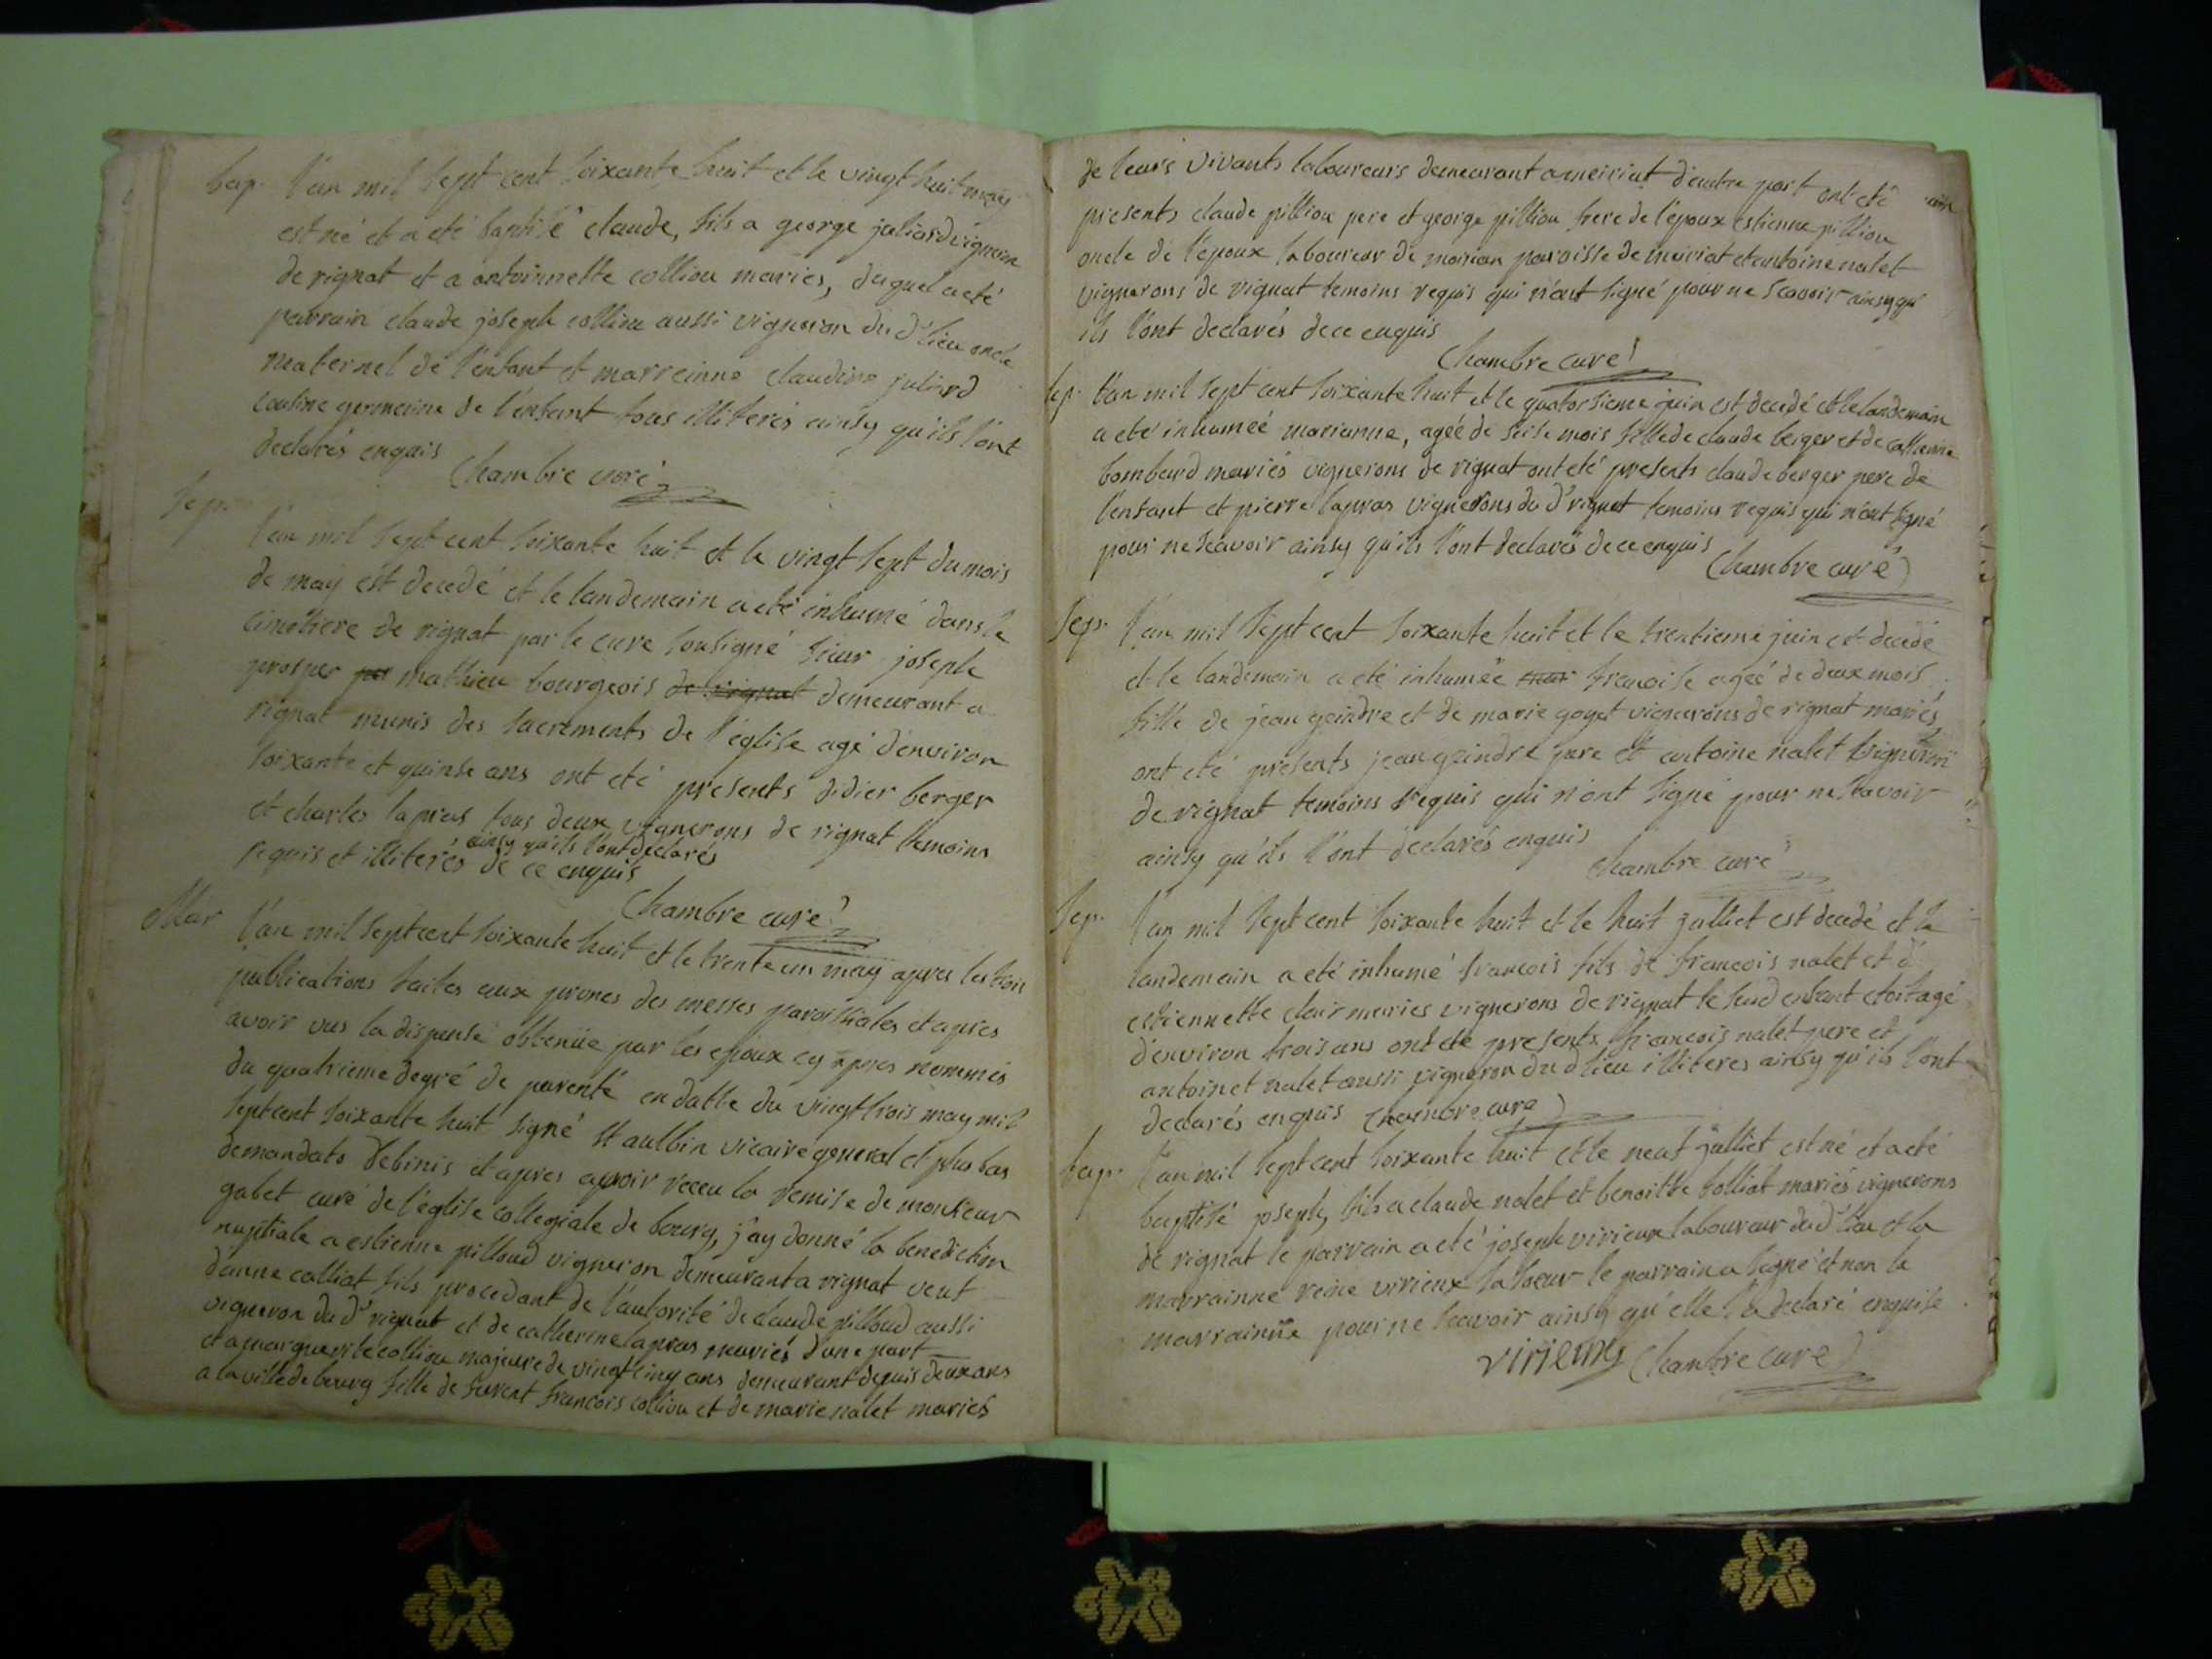 bap. l'an mil sept cent soixante huit et le vingt huit may
est né et a eté baptisé claude, fils a george juliard vigneron
de rignat et a antoinnette colliou mariés, duquel a eté
parrain claude joseph colliou aussi vigneron du d' lieu oncle
maternel de l'enfant et marreinne claudine juliard
cousine germeine de l'enfant tous illiterés ainsy qu'ils l'ont
declarés enquis
Chambre curé
sep.
l'an mil sept cent soixante huit et le vingt sept du mois
de may est decedé et le landemain a eté inhumé dans le
cimetiere de rignat par le curé sousigné sieur joseph
prosper mathieu bourgeois de rignat demeurant a
rignat munis des sacrements de l'église agé d'environ
soixante et quinse ans ont eté presents didier berger
et charles lapras tous deux vignerons de rignat temoins
ainsy qu'ils l'ont declarés
requis et illiterés de ce enquis
Chambre curé
Mar l'an mil sept cent soixante huit et le trente un may apres les trois
publications faites aux prones des messes paroissiales et apres
avoir vus la dispense obtenüe par les epoux cy apres nommés
du quatrieme degré de parenté en datte du vingt trois may mil
sept cent soixante huit signé st aulbin vicaire general et plus bas
demandato debinis et apres avoir receu la remise de monsieur
gabet curé de l'église collegiale de bourg, j'ay donné la benediction
nuptiale a estienne pilloud vigneron demeurant a rignat veuf
d'anne colliat fils procedant de l'autorité de claude pilloud aussi
vigneron du d' rignat et de catherine lapras mariés d'une part
et a marguerite colliou majeure de vingt cinq ans demeurant depuis deux ans
a la ville de bourg fille de furent francois colliou et de marie nalet mariés
de leurs vivants laboureurs demeurant a meiriat d'autre part ont eté
presents claude pilliou pere et george pilliou frere de l'epoux estienne pilliou
oncle de l'epoux laboureur de paroisse de meiriat et antoine nalet
vignerons de rignat temoins requis qui n'ont signé pour ne scavoir ainsy qu'
ils l'ont declarés de ce enquis
Chambre curé
sep. l'an mil sept cent soixante huit et le quatorsieme juin est decedé et le landemain
a eté inhumeé marianne, agée de seise mois fille de claude berger et de catherine
bombourd mariés vignerons de rignat ont eté presents claude berger pere de
l'enfant et pierre lapras vignerons du d' rignat temoins requis qui n'ont signé
pour ne scavoir ainsy qu'ils l'ont declarés de ce enquis
Chambre curé
sep. l'an mil sept cent soixante huit et le trentieme juin est decedé
et le landemain a eté inhumée francoise agée de deux mois
fille de jean geindre et de marie goyet vignerons de rignat mariés
ont eté presents jean geindre pere et antoine nalet vignerons
de rignat temoins requis qui n'ont signé pour ne scavoir
ainsy qu'ils l'ont declarés enquis
Chambre curé
sep. l'an mil sept cent soixante huit et le huit julliet est decedé et le
landemain a eté inhumé francois fils de francois nalet et d'
estiennette clair mariés vignerons de rignat le susd enfant etoit agé
d'environ trois ans ont eté presents francois nalet pere et
antoinet nalet aussi vigneron du d lieu illiteres ainsy qu'ils l'ont
declarés enquis Chambre curé
bap. l'an mil sept cent soixante huit et le neuf julliet est né et a eté
baptisé joseph, fils a claude nalet et benoitte colliat mariés vignerons
de rignat le parrain a eté joseph virieux laboureur du d' lieu et la
marrainne reine virieux sa soeur le parrain a signé et non la
marrainne pour ne scavoir ainsy qu'elle l'a declaré enquise
virieux Chambre curé